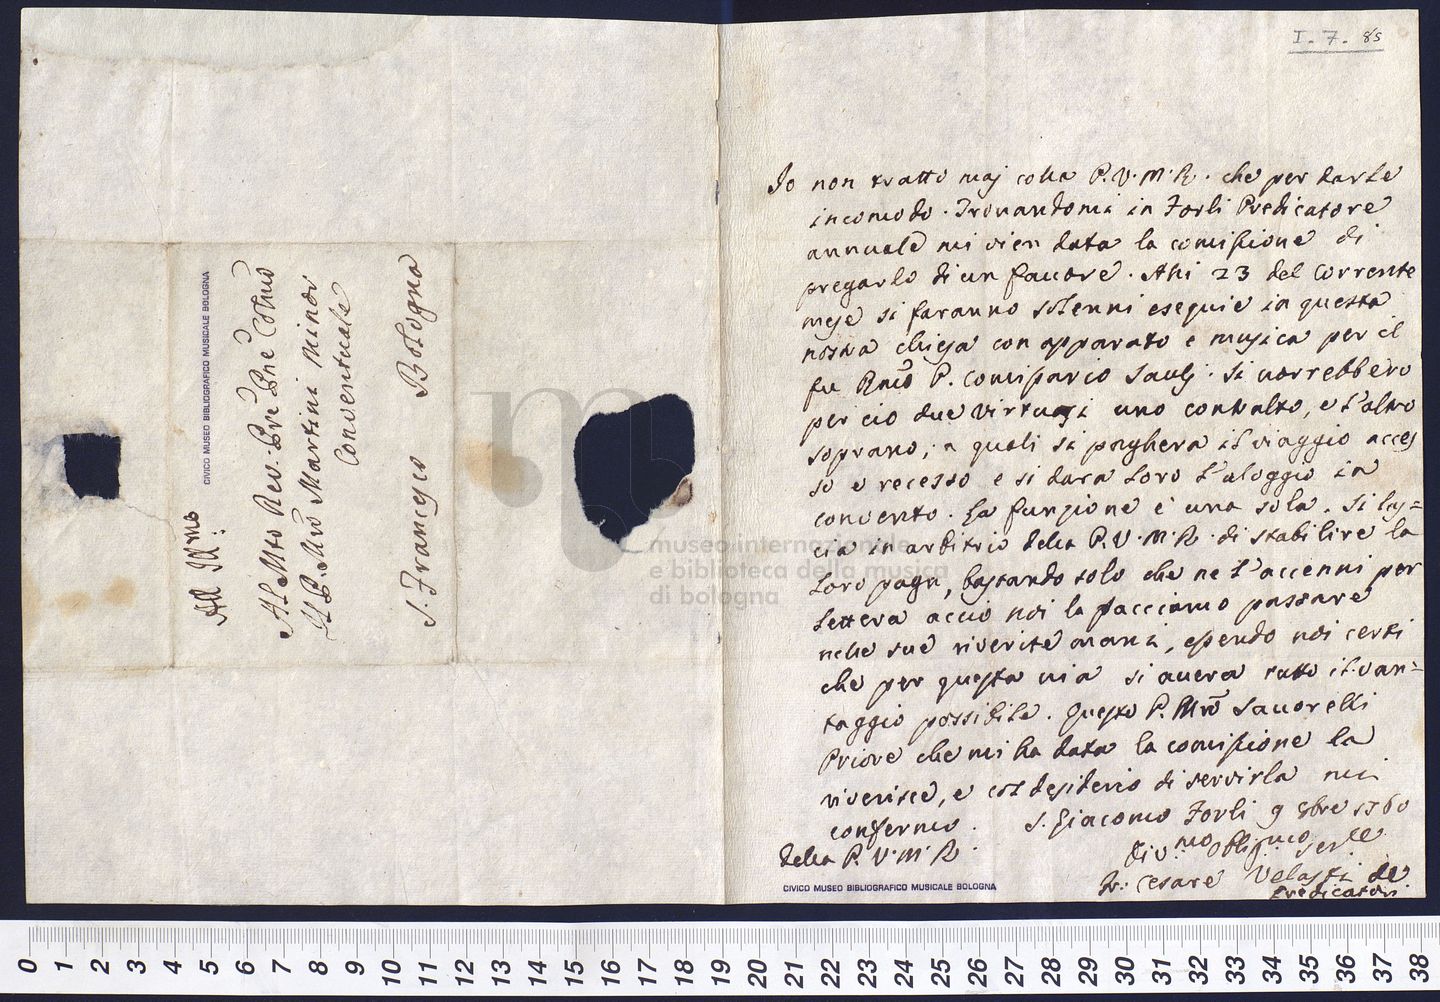 All' Ill.mo
Al Mto Rev. Pre Pre Colmo
Il P. Mro Martini Minor
Conventuale
S. Francesco Bologna
CIVICO MUSEO BIBLIOGRAFICO MUSICALE BOLOGNA
I. 7. 85
Io non tratto maj colla P.V.M.R. che per darle
incomodo. Trovandomi in Forlì Predicatore
annuale mi vien data la comissione di
pregarlo di un favore. Alli 23 del corrente
mese si faranno solenni esequie in questa
nostra chiesa con apparato e musica per il
fu Rmo P. Comissario Saulj. Si vorrebbero
per ciò due virtuosi uno contralto, e l'altro
soprano, a quali si pagherà il viaggio acces
so e recesso e si darà loro l'aloggio in
convento. La funzione è una sola. Si las=
cia in arbitrio della P.V.M.R. di stabilire la
loro paga, bastando solo che ne l'accenni per
lettera acciò noi la facciamo passare
nelle sue riverite mani, essendo noi certi
che per questa via si averà tutto il van=
taggio possibile. Questo P. Mro Savorelli
Priore che mi ha data la comissione la
riverisce, e col desiderio di servirla mi
confermo. S. Giacomo Forlì 9 8bre 1760
della P.V.M.R.
Divmo Obligmo Serve
Fr. Cesare Velasti de
Predicatori
CIVICO MUSEO BIBLIOGRAFICO MUSICALE BOLOGNA
museo internazionale
e biblioteca della musica
di bologna
0 1 2 3 4 5 6 7 8 9 10 11 12 13 14 15 16 17 18 19 20 21 22 23 24 25 26 27 28 29 30 31 32 33 34 35 36 37 38